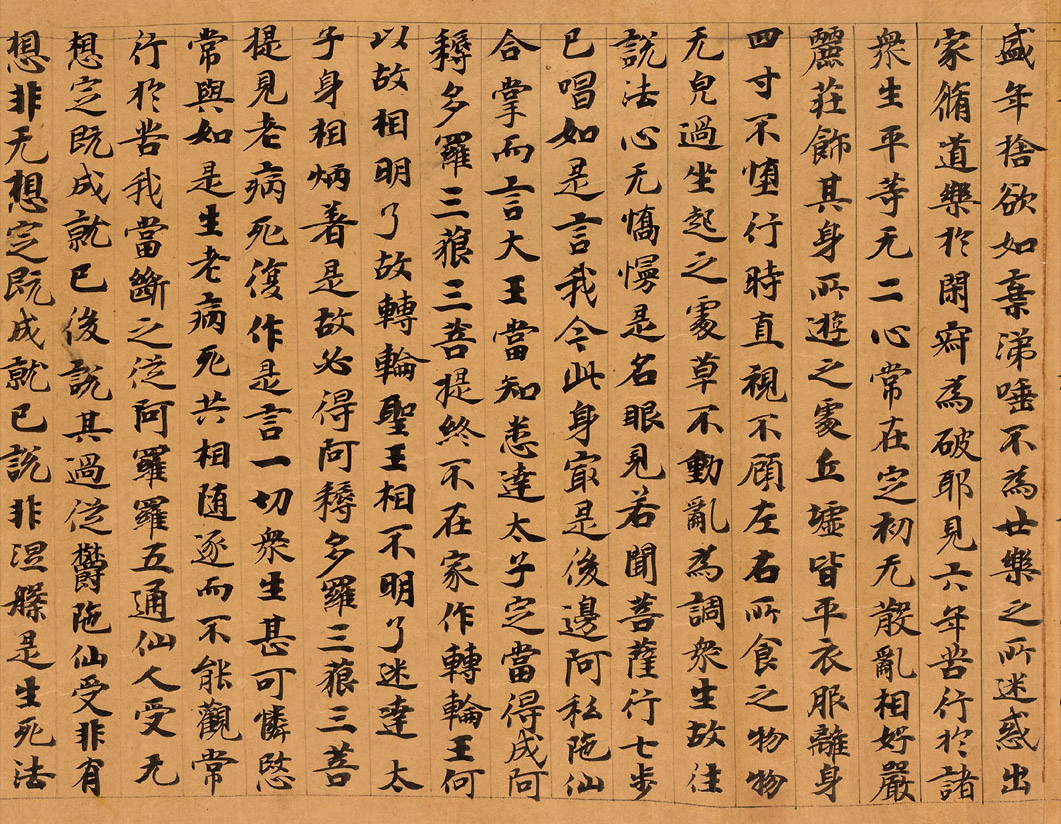 盛年捨欲如棄涕唾不為世樂之所迷惑出
家脩道樂於閑寂為破耶見六年苦行於諸
衆生平等无二心常在定初无散亂相好嚴
麗莊飾其身所遊之處丘墟皆平衣服離身
四寸不墮行時直視不顧左右所食之物物
无皃過坐起之處草不動亂為調衆生故往
說法心无憍慢是名眼見若聞菩薩行七步
已唱如是言我今此身冣是後邊阿私陁仙
合掌而言大王當知悉達太子定當得成阿
耨多羅三藐三菩提終不在家作轉輪王何
以故相明了故轉輪聖王相不明了迷達太
子身相炳著是故必得阿耨多羅三藐三菩
提見老病死復作是言一切衆生甚可憐愍
常與如是生老病死共相随逐而不能觀常
行於苦我當斷之從阿羅羅五通仙人受无
想定既成就已後說其過從欝陁仙受非有
想非无想定既成就已說非涅槃是生死法